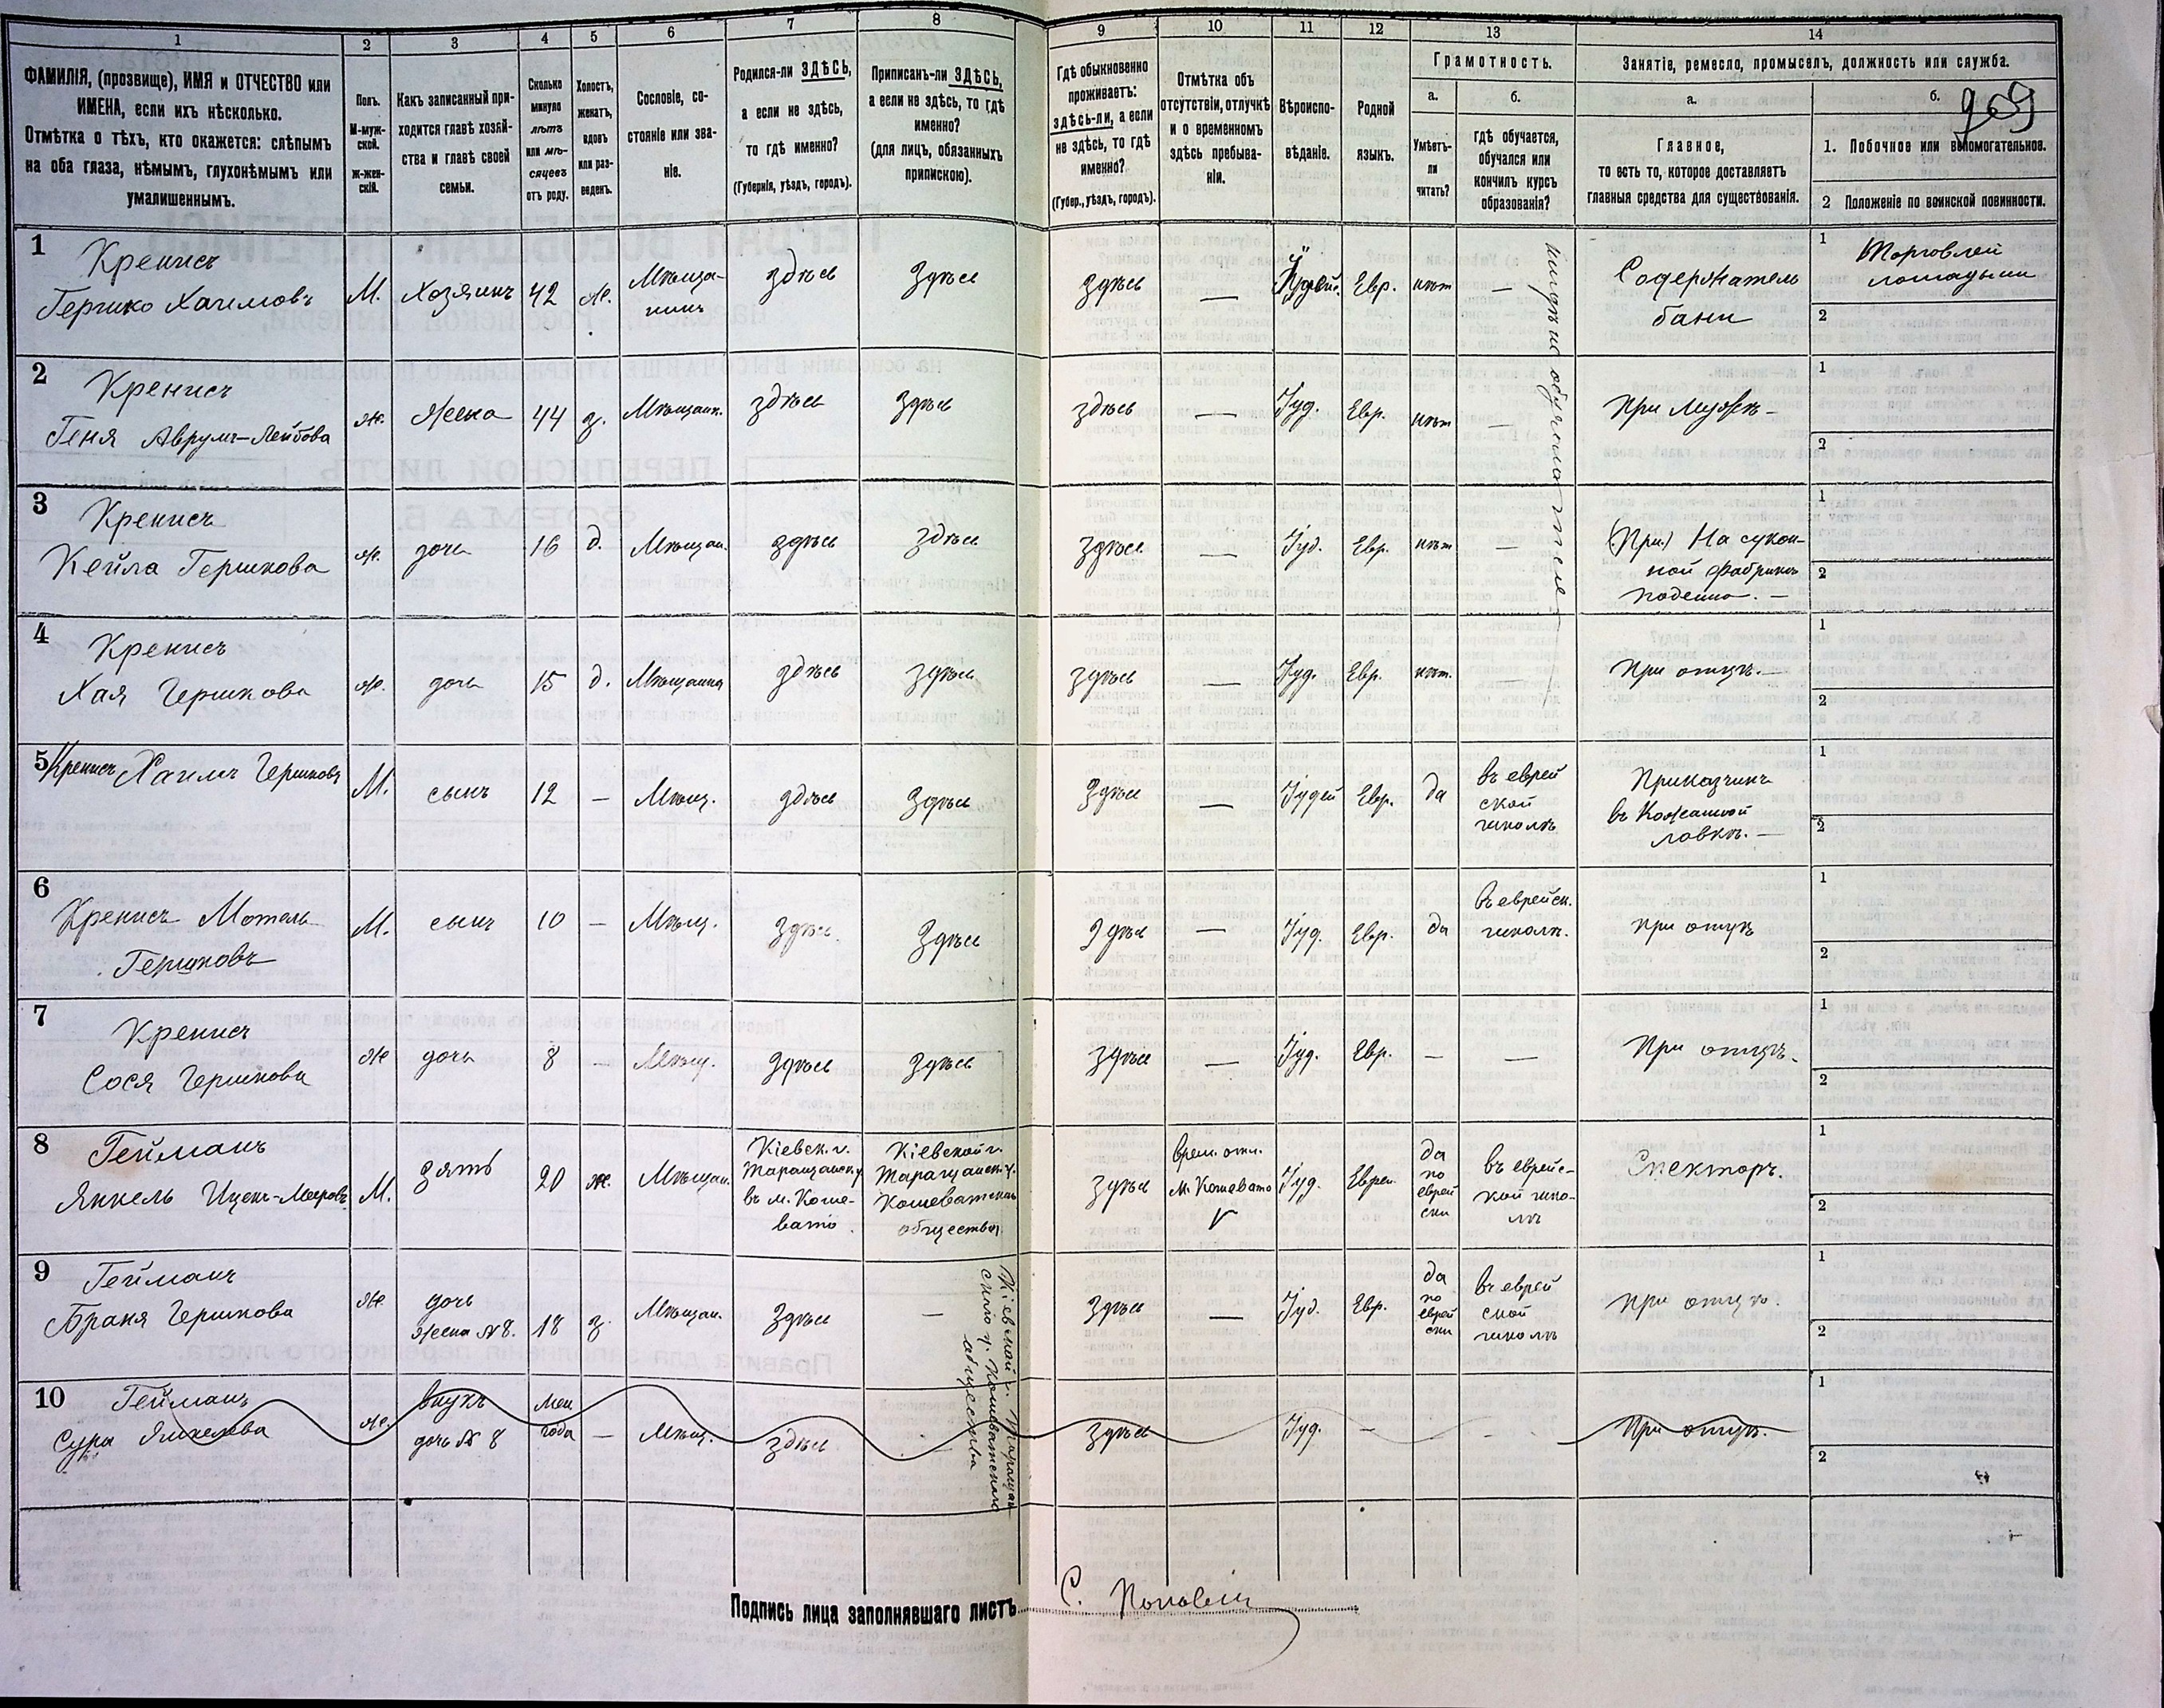 1
2
3
4
5
6
7
8
9
10
11
12
13
14
ФАМИЛІЯ, (прозвище), ИМЯ и ОТЧЕСТВО или
ИМЕНА, если ихъ нѣсколько.
Отмѣтка о тѣхъ, кто окажется: слѣпымъ
на оба глаза, нѣмымъ, глухонѣмымъ или
умалишеннымъ.
Полъ.
М-муж-
ской.
ж-жен-
скій.
Какъ записанный при-
ходится главѣ хозяй-
ства и главѣ своей
семьи.
Сколько
минуло
лѣтъ
или мѣ-
сяцевъ
отъ роду.
Холостъ,
женатъ,
вдовъ
или раз-
веденъ.
Сословіе, со-
стояніе или зва-
ніе.
Родился-ли ЗДѢСЬ,
а если не здѣсь,
то гдѣ именно?
(Губернія, уѣздъ, городъ).
Приписанъ-ли ЗДѢСЬ,
а если не здѣсь, то гдѣ
именно?
(для лицъ, обязанныхъ
припискою).
Гдѣ обыкновенно
проживаетъ:
здѣсь-ли, а если
не здѣсь, то гдѣ
именно?
(Губер., уѣздъ, городъ).
Отмѣтка объ
отсутствіи, отлучкѣ
и о временномъ
здѣсь пребыва-
ніи.
Вѣроиспо-
вѣданіе.
Родной
языкъ.
Грамотность.
а.
б.
Умѣетъ-
ли
читать?
гдѣ обучается,
обучался или
кончилъ курсъ
образованія?
Занятіе, ремесло, промыселъ, должность или служба.
а.
б.
Главное,
то есть то, которое доставляетъ
главныя средства для существованія.
1. Побочное или вспомогательное.
2 Положеніе по воинской повинности.
969
1
Кренисъ
Гершко Хаимовъ
М.
Хозяинъ
42
ж.
Мѣща-
нинъ
здѣсь
Здѣсь
здѣсь
—
Іудей.
Евр.
нѣтъ
—
Содержатель
бани
1
Торговлей
лошадьми
2
2
Кренисъ
Геня Аврумъ-Лейбова
ж.
жена
44
з.
Мѣщанк.
здѣсь
здѣсь
здѣсь
—
Іуд.
Евр.
нѣтъ
—
При мужѣ —
1
2
3
Кренисъ
Кейла Гершкова
ж.
дочь
16
д.
Мѣщан.
здѣсь
здѣсь
здѣсь
—
Іуд.
Евр.
нѣтъ
—
(При.) На сукон-
ной фабрикѣ
поденно. —
1
2
4
Кренисъ
Хая Гершкова
ж.
дочь
15
д.
Мѣщанка
здѣсь
здѣсь
здѣсь
—
Іуд.
Евр.
нѣт.
—
При отцѣ. —
1
2
5
Кренисъ Хаимъ Гершковъ
М.
сынъ
12
—
Мѣщ.
здѣсь
Здѣсь
Здѣсь
—
Іудей
Евр.
да
въ еврей
ской
школѣ
Приказчикъ
въ Кожаной
лавкѣ. —
1
2
6
Кренисъ Мотель
Гершковъ
М.
сынъ
10
—
Мѣщ.
Здѣсь.
Здѣсь
Здѣсь
—
Іуд.
Евр.
да
въ еврейск.
школѣ.
при отцѣ
1
2
7
Кренисъ
Сося Гершкова
ж
дочь
8
—
Мѣщ.
Здѣсь
Здѣсь
здѣсь
—
Іуд.
Евр.
—
—
При отцѣ.
1
2
8
Гейманъ
Янкель Ицекъ-Мееровъ
М.
зять
20
ж.
Мѣщан.
Кіевск. г.
Таращанск. у.
въ м. Коше-
вато.
Кіевской г.
Таращанск. у.
Кошеватскаго
общества
здѣсь
врем. отл.
м. Кошевато
Іуд.
Еврей.
да
по
еврей
ски
въ еврейс-
кой шко-
лѣ
Спекторъ.
1
2
9
Гейманъ
Браня Гершкова
ж.
дочь
жена №8.
18
з.
Мѣщан.
Здѣсь
—
Кіевской г. Таращан-
скаго у. Кошеватскаго
общества
Здѣсь
—
Іуд.
Евр.
да
по
еврей
ски
въ еврей
ской
школѣ
При отцѣ.
1
2
10
Гейманъ
Сура Янкелева
ж.
внукъ
дочь № 8
Мен
года
—
Мѣщ.
здѣсь
здѣсь
Іуд.
—
При отцѣ.
1
2
Подпись лица заполнявшаго листъ
С.